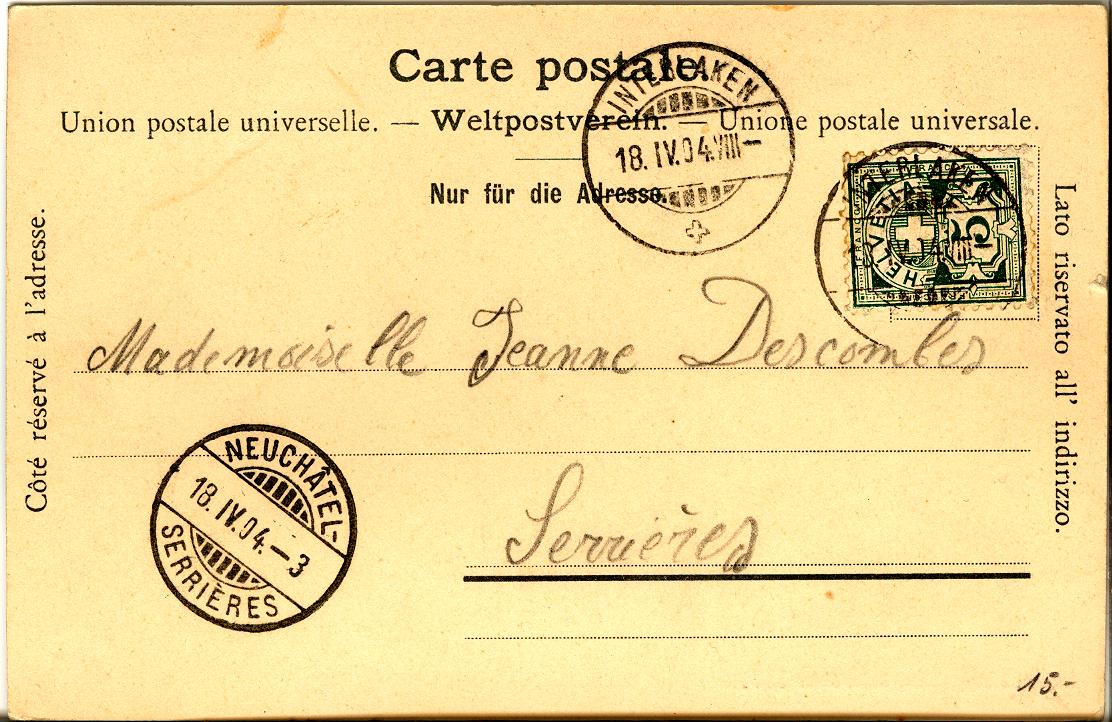 Carte postale.
Union postale universelle. — Weltpostverein. — Unione postale universale.
Nur für die Adresse.
INTERLAKEN
18.IV.04.VIII—
INTERLAKEN
HELVETIA
5
FRANCO
Côté réservé à l'adresse.
Lato riservato all' indirizzo.
Mademoiselle Jeanne Descombes
Serrières
NEUCHÂTEL-
18.IV.04.—3
SERRIÈRES
15.-